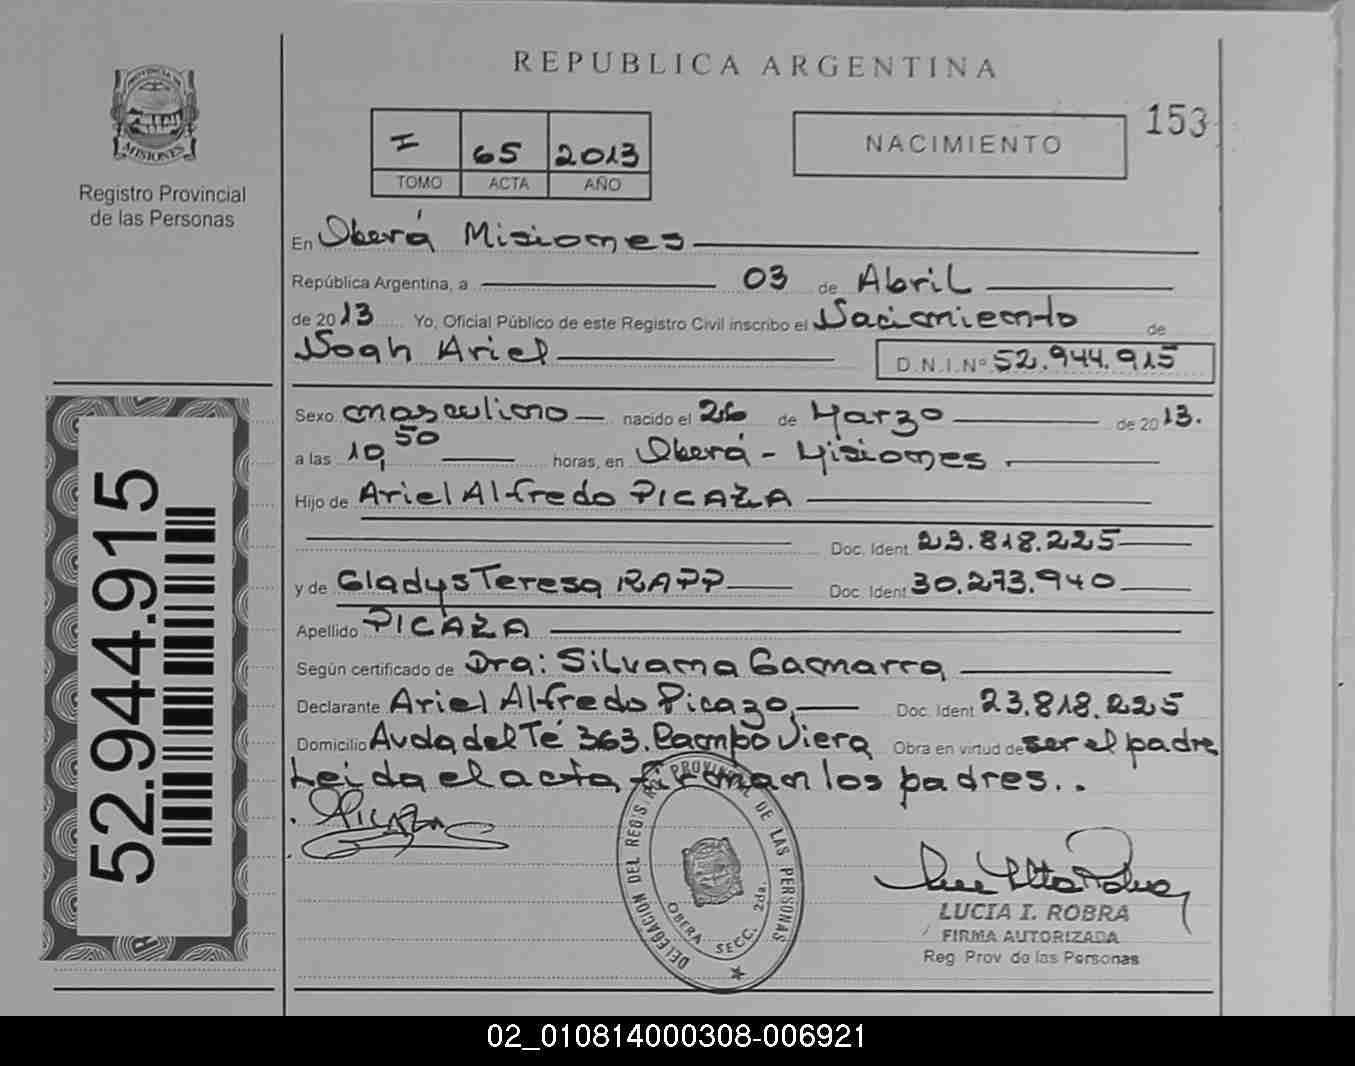 REPUBLICA ARGENTINA
PROVINCIA DE
MISIONES
Registro Provincial
de las Personas
I 65 2013
TOMO ACTA AÑO
NACIMIENTO
153
En Oberá Misiones
República Argentina, a 03 de Abril
de 2013 Yo, Oficial Público de este Registro Civil inscribo el Nacimiento de
Noah Ariel D.N.I.Nº 52.944.915
Sexo masculino nacido el 26 de Marzo de 2013.
a las 10,50 horas, en Oberá - Misiones.
Hijo de Ariel Alfredo PICAZA
Doc. Ident. 23.818.225
y de Gladys Teresa RAPP Doc. Ident 30.273.940
Apellido PICAZA
Según certificado de Dra: Silvana Gamarra
Declarante Ariel Alfredo Picaza, Doc. Ident 23.818.225
Domicilio Avda del Té 363. Campo Viera Obra en virtud de ser el padre
Leida el acta, firman los padres..
PICAZA
DELEGACION DEL REGISTRO PROVINCIAL DE LAS PERSONAS
OBERA SECC. 2da.
LUCIA I. ROBRA
FIRMA AUTORIZADA
Reg Prov de las Personas
52.944.915
02_010814000308-006921